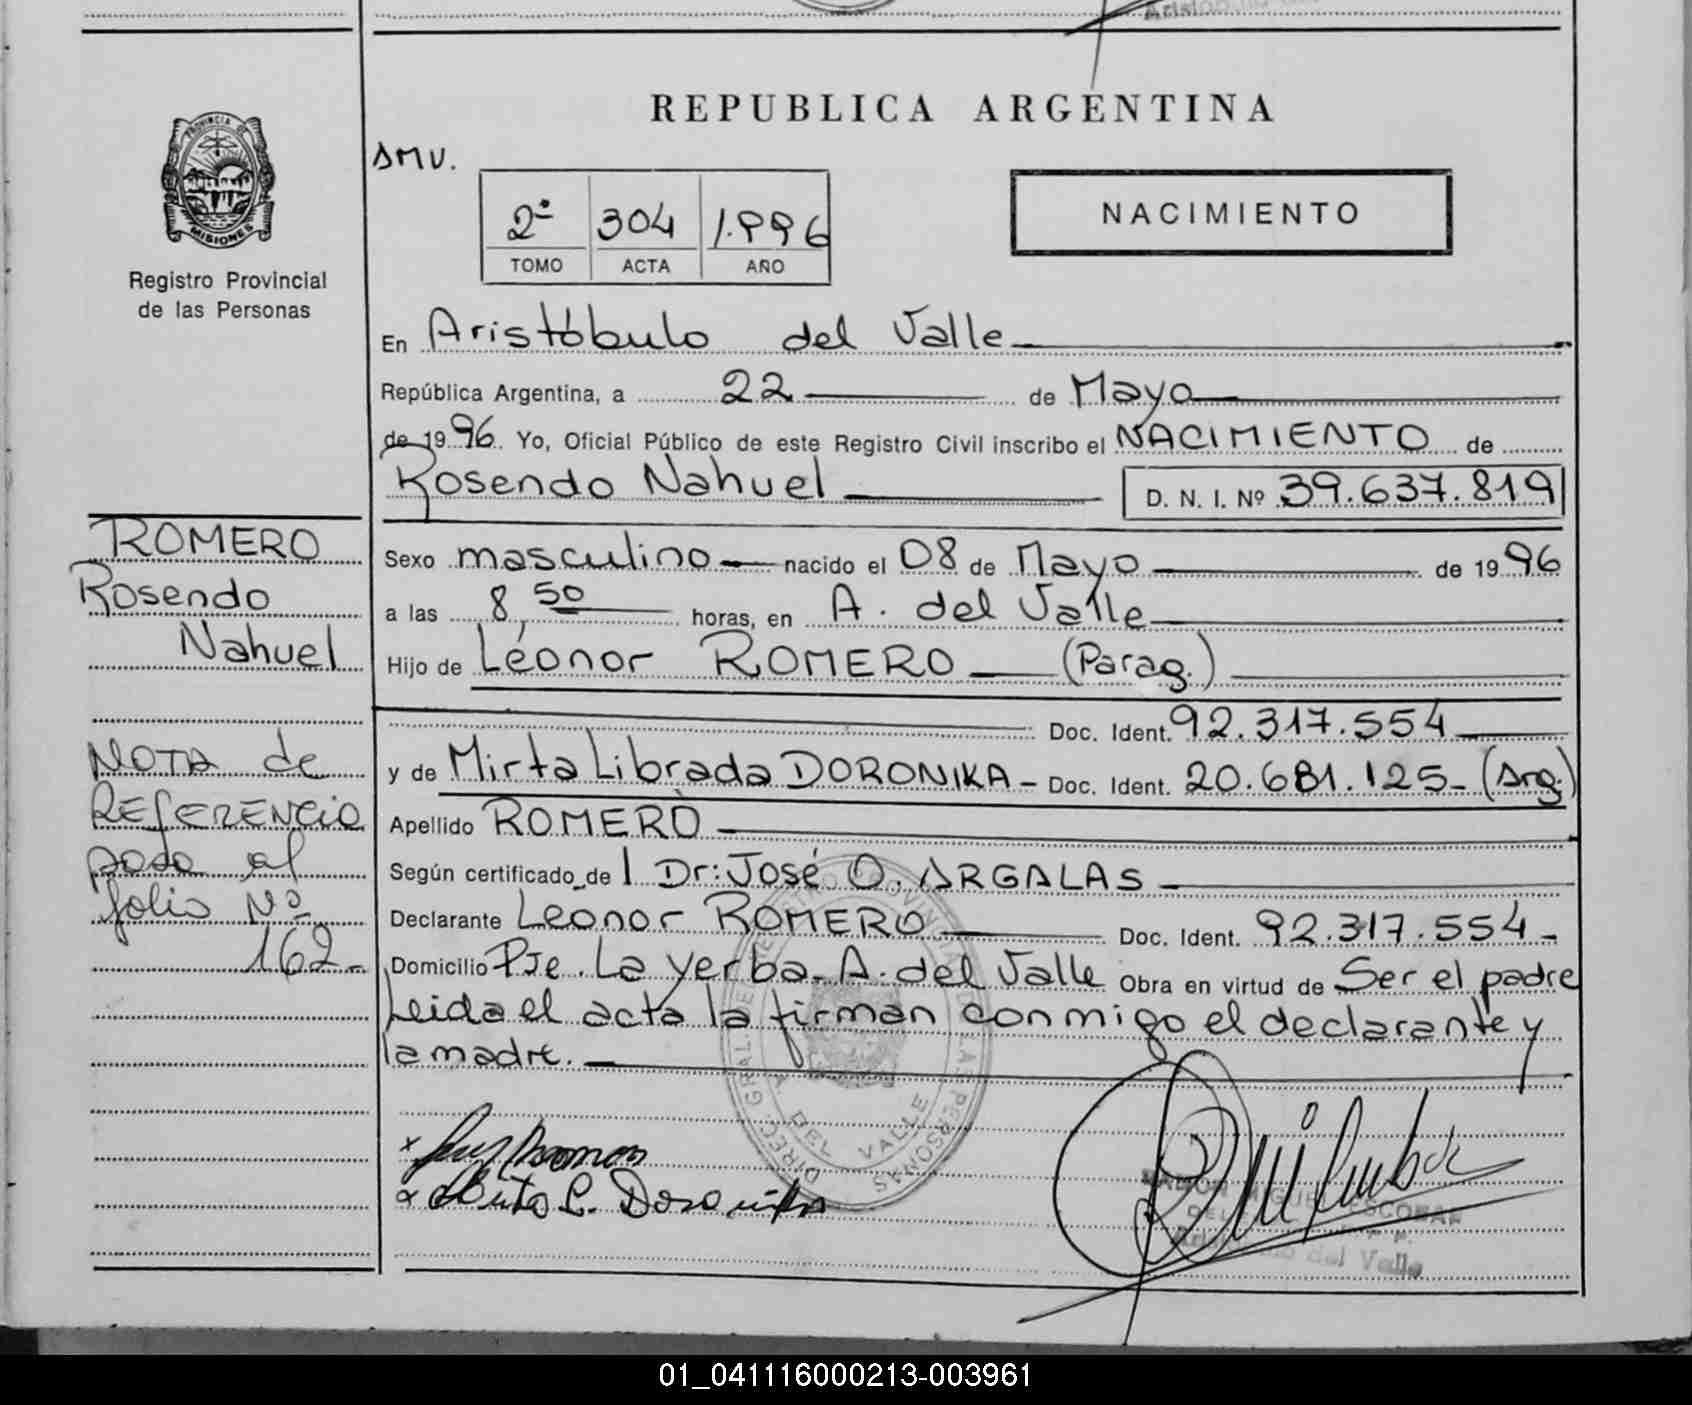 REPUBLICA ARGENTINA
PROVINCIA DE
MISIONES
Registro Provincial
de las Personas
SMV.
2º 304 1.996
TOMO ACTA AÑO
NACIMIENTO
En Aristóbulo del Valle
República Argentina, a 22 de Mayo
de 1996. Yo, Oficial Público de este Registro Civil inscribo el NACIMIENTO de
Rosendo Nahuel D. N. I. Nº 39.637.819
ROMERO
Rosendo
Nahuel
Sexo masculino nacido el 08 de Mayo de 1996
a las 8,50 horas, en A. del Valle
Hijo de Leonor ROMERO (Parag.)
Doc. Ident. 92.317.554
y de Mirta Librada DORONIKA - Doc. Ident. 20.681.125- (Arg.)
Apellido ROMERO
Según certificado de 1 Dr: José O. ARGALAS
Declarante Leonor ROMERO Doc. Ident. 92.317.554-
Domicilio Pje. La yerba- A. del Valle Obra en virtud de Ser el padre
Leida el acta la firman conmigo el declarante y
la madre.
NOTA de
REFERENCIA
pasa al
folio Nº
162-
DIREC. GRAL. DE REGISTRO PROVINCIAL DE LAS PERSONAS
A. DEL VALLE
RAMON MIGUEL ESCOBAR
Aristobulo del Valle
01_041116000213-003961